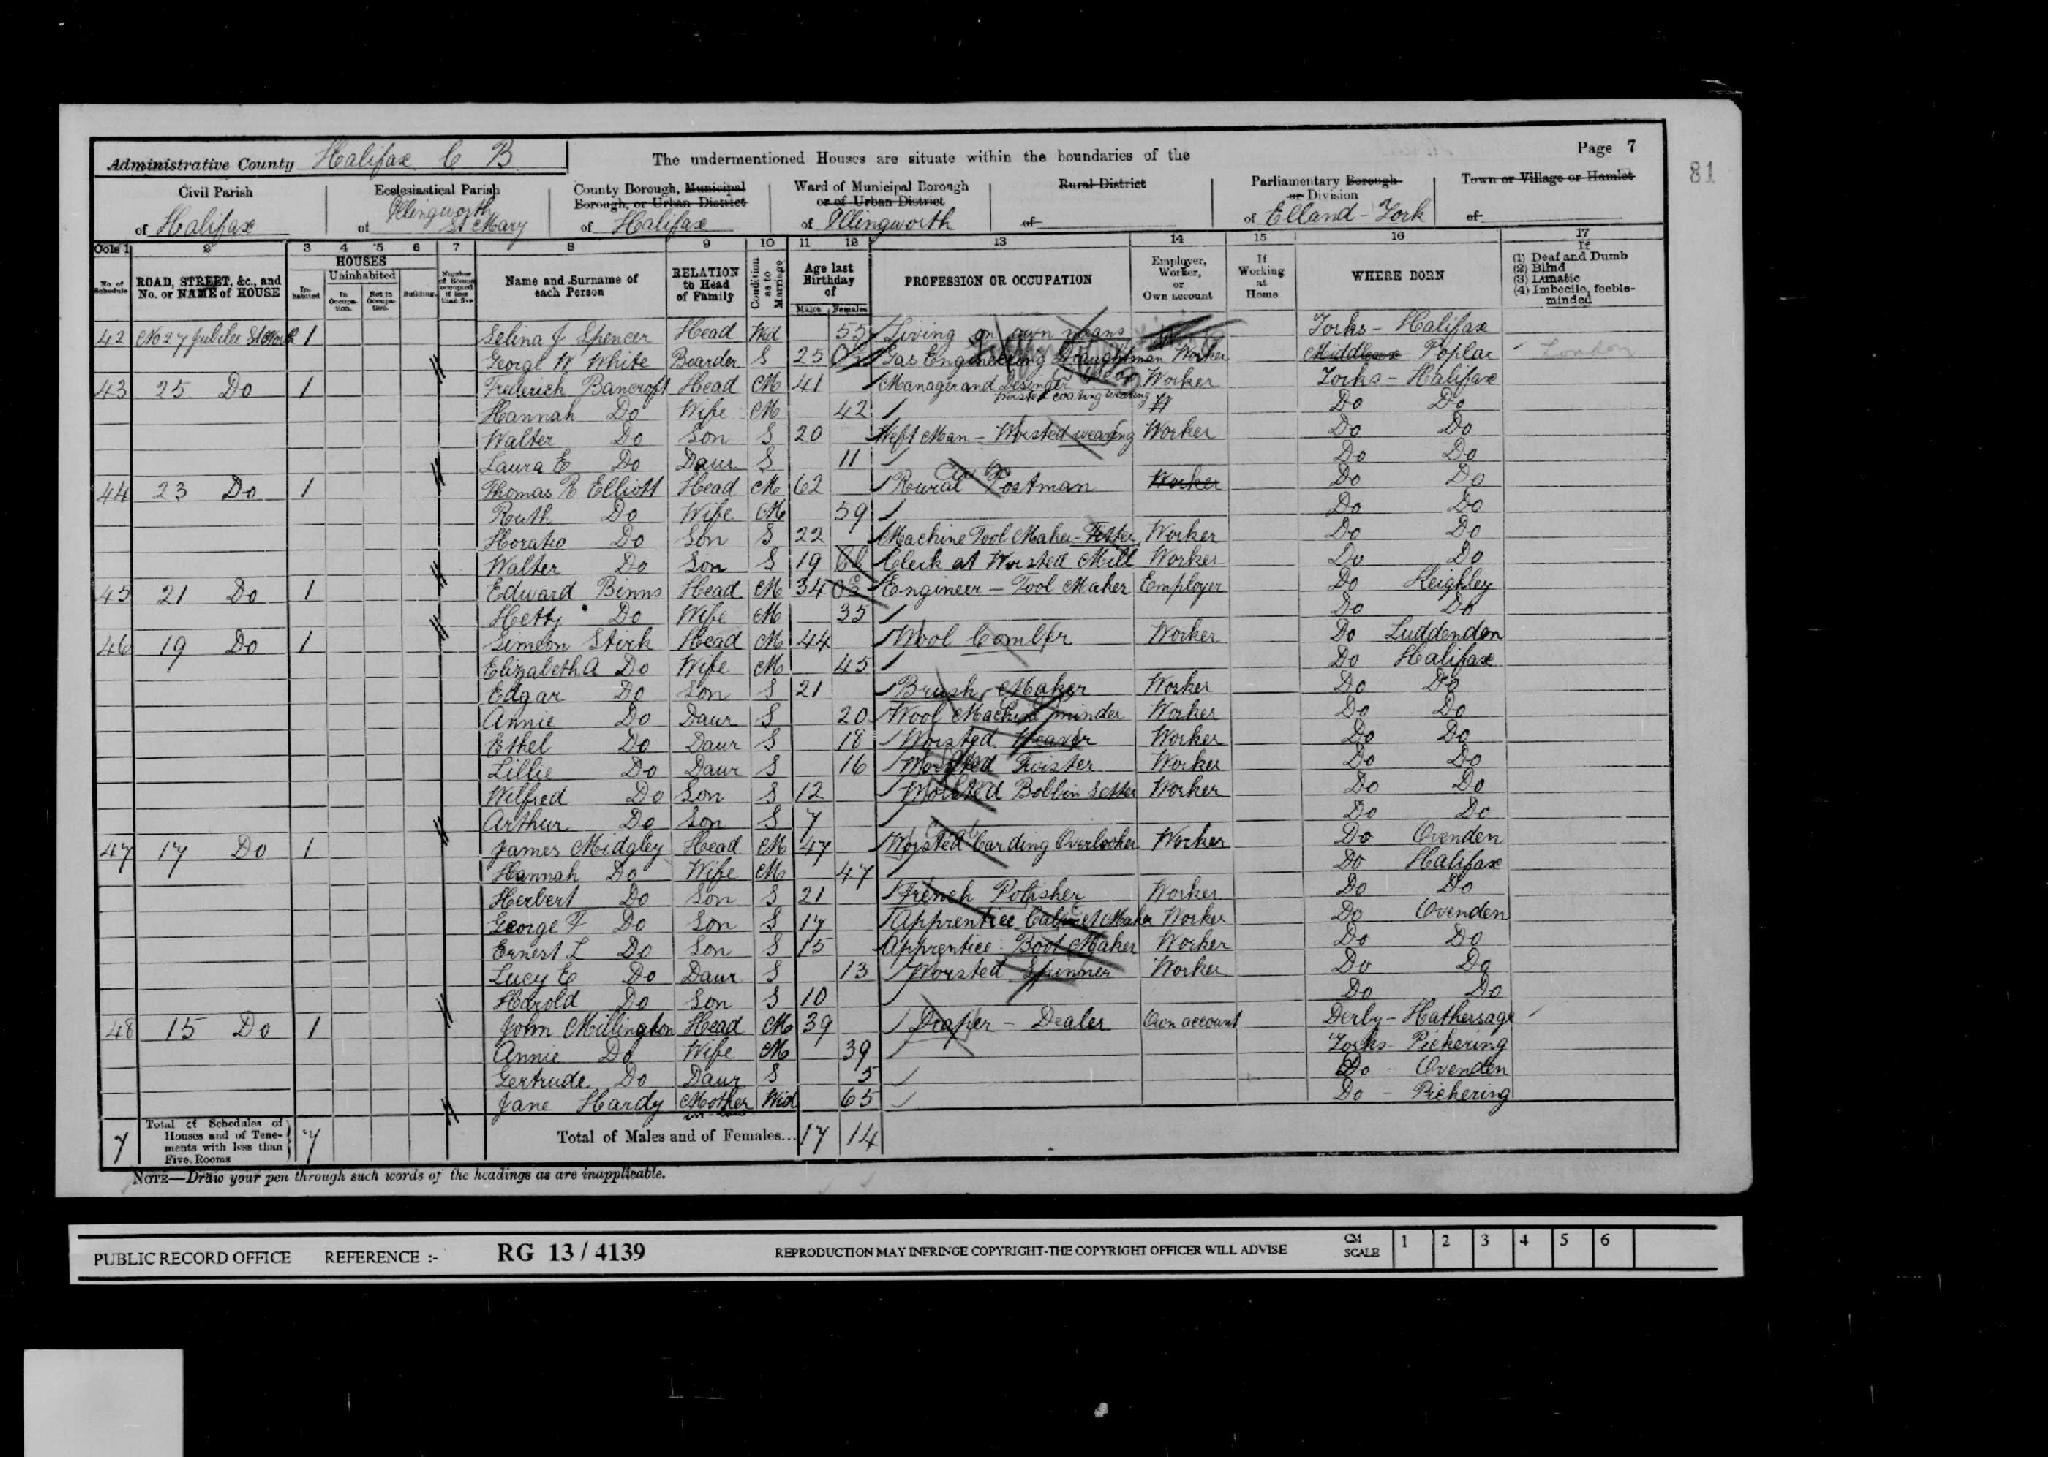 Administrative County Halifax C B The undermentioned Houses are situate within the boundaries of the Page 7
81
Civil Parish of Halifax
Ecclesiastical Parish of Illingworth St Mary
County Borough, Municipal Borough, or Urban District of Halifax
Ward of Municipal Borough or of Urban District of Illingworth
Rural District of
Parliamentary Borough or Division of Elland - York
Town or Village or Hamlet of
Cols 1 2 3 4 5 6 7 8 9 10 11 12 13 14 15 16 17
No. of Schedule
ROAD, STREET, &c., and No. or NAME of HOUSE
HOUSES
Inhabited
Uninhabited
In Occupation.
Not in Occupation.
Building
Number of Rooms occupied if less than five
Name and Surname of each Person
RELATION to Head of Family
Condition as to Marriage
Age last Birthday of
Males Females
PROFESSION OR OCCUPATION
Employer, Worker, or Own account
If Working at Home
WHERE BORN
If (1) Deaf and Dumb (2) Blind (3) Lunatic (4) Imbecile, feeble-minded
42 No 27 Jubilee St 1 Selina J Spencer Head Wid 55 Living on own means Yorks - Halifax
George W White Boarder S 25 Gas Engineering Draughtman Worker Middlesex Poplar London
43 25 Do 1 Frederick Bancroft Head M 41 Manager and Designer Worsted coating weaving Worker Yorks - Halifax
Hannah Do Wife M 42 Do Do
Walter Do Son S 20 Weft Man - Worsted weaving Worker Do Do
Laura E Do Daur S 11 Do Do
44 23 Do 1 Thomas R Elliott Head M 62 Rural Postman Worker Do Do
Ruth Do Wife M 59 Do Do
Horatio Do Son S 22 Machine Tool Maker - Fitter Worker Do Do
Walter Do Son S 19 Clerk at Worsted Mill Worker Do Do
45 21 Do 1 Edward Binns Head M 34 Engineer - Tool Maker Employer Do Keighley
Hetty Do Wife M 35 Do Do
46 19 Do 1 Simeon Stirk Head M 44 Wool Comber Worker Do Luddenden
Elizabeth A Do Wife M 45 Do Halifax
Edgar Do Son S 21 Brush Maker Worker Do Do
Annie Do Daur S 20 Wool Machine minder Worker Do Do
Ethel Do Daur S 18 Worsted Weaver Worker Do Do
Lillie Do Daur S 16 Worsted Twister Worker Do Do
Wilfred Do Son S 12 Worsted Bobbin Setter Worker Do Do
Arthur Do Son S 7 Do Do
47 17 Do 1 James Midgley Head M 47 Worsted Carding Overlooker Worker Do Ovenden
Hannah Do Wife M 47 Do Halifax
Herbert Do Son S 21 French Polisher Worker Do Do
George F Do Son S 17 Apprentice Cabinet Maker Worker Do Ovenden
Ernest L Do Son S 15 Apprentice Boot Maker Worker Do Do
Lucy E Do Daur S 13 Worsted Spinner Worker Do Do
Harold Do Son S 10 Do Do
48 15 Do 1 John Millington Head M 39 Draper - Dealer Own account Derby - Hathersage
Annie Do Wife M 39 Yorks - Pickering
Gertrude Do Daur S 5 Do Ovenden
Jane Hardy Mother Wid 65 Do - Pickering
7 Total of Schedules of Houses and of Tenements with less than Five Rooms 7 Total of Males and of Females... 17 14
NOTE—Draw your pen through such words of the headings as are inapplicable.
PUBLIC RECORD OFFICE REFERENCE :- RG 13 / 4139 REPRODUCTION MAY INFRINGE COPYRIGHT-THE COPYRIGHT OFFICER WILL ADVISE CM SCALE 1 2 3 4 5 6